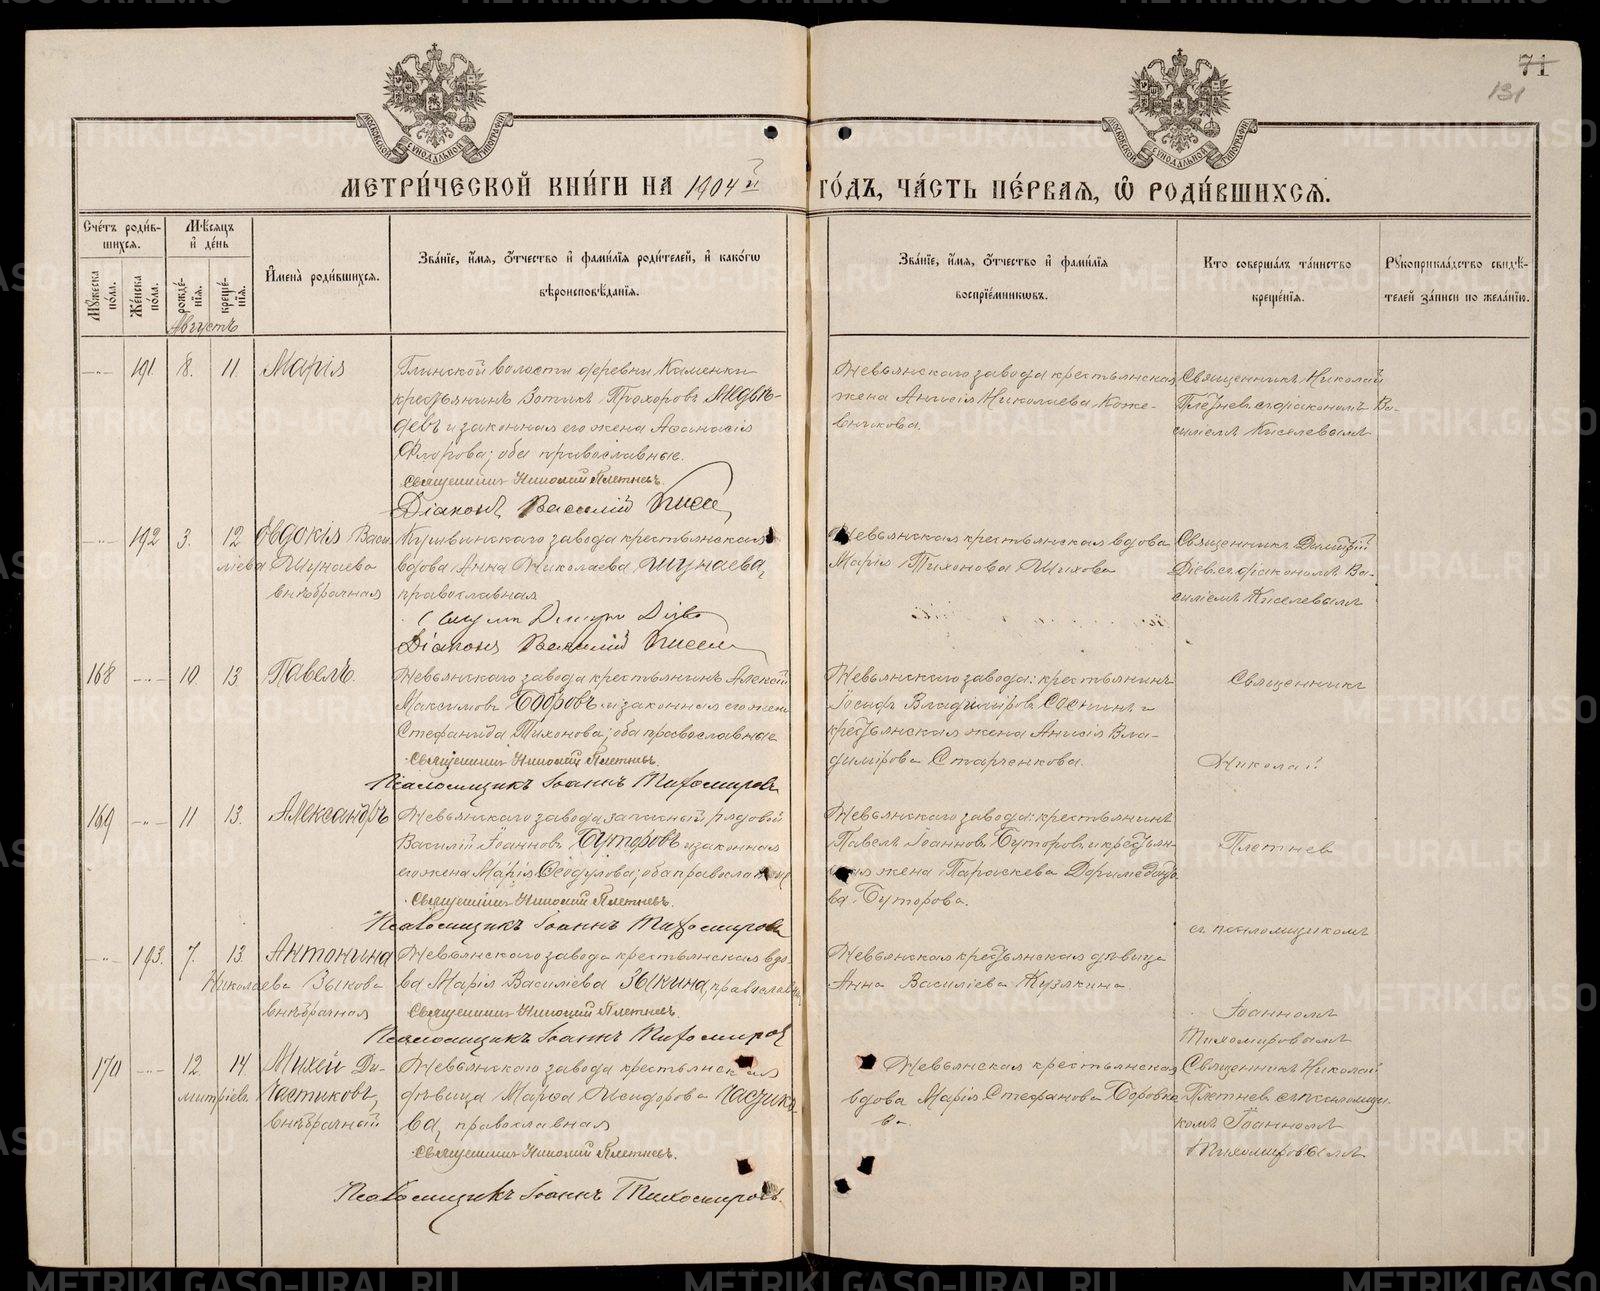 71
131
МОСКОВСКОЙ СѴНОДАЛЬНОЙ ТИПОГРАФІИ
МОСКОВСКОЙ СѴНОДАЛЬНОЙ ТИПОГРАФІИ
МЕТРИ́ЧЕСКОЙ КНИ́ГИ НА 1904й ГО́ДЪ, ЧА́СТЬ ПЕ́РВАЯ, Ѡ҆ РОДИ́ВШИХСЯ.
Сче́тъ роди́в-
шихся.
Мꙋ́жеска по́ла.
Же́нска по́ла.
Мѣ́сяцъ
и҆ де́нь
рожде́-
нїя.
креще́-
нїя.
Августъ
И҆мена̀ роди́вшихся.
Зва́нїе, и҆́мя, ѻ҆́тчество и҆ фами́лїя роди́телей, и҆ како́гѡ
вѣроисповѣ́данїя.
Зва́нїе, и҆́мя, ѻ҆́тчество и҆ фами́лїя
воспрїе́мникѡвъ.
Кто соверша́лъ та́инство
креще́нїя.
Рꙋкоприкла́дство свидѣ́-
телей за́писи по жела́нїю.
191. 8. 11. Марія
Глинской волости деревни Каменки
крестьянинъ Зотикъ Прохоровъ Медвѣ-
девъ и законная его жена Аѳанасія
Флорова; оба православные.
Священникъ Николай Плетневъ.
Діаконъ Василій Кисел
Невьянскаго завода крестьянская
жена Анисія Николаева Коже-
вникова.
Священникъ Николай
Плетнев с діакономъ Ва-
силіемъ Киселевымъ
192 3. 12 Евдокія Васи
ліева Шунаева
внѣбрачная
Кушвинскаго завода крестьянская
вдова Анна Николаева Шунаева,
православная
Діаконъ Василій Кисел
Невьянская крестьянская вдова
Марія Тихонова Шихова
Священникъ Димитрій
Діев с діакономъ Ва-
силіемъ Киселевымъ
168 10. 13 Павелъ.
Невьянскаго завода крестьянинъ Алексій
Максимовъ Бобровъ и законная его жена
Стефанида Тихонова; оба православные
Священникъ Николай Плетневъ.
Псаломщикъ Іоаннъ Тихомировъ
Невьянскаго завода: крестьянинъ
Іосифъ Владиміровъ Соснинъ и
крестьянская жена Анисія Вла-
димірова Старченкова.
Священникъ
Николай
169 11 13. Александръ
Невьянскаго завода запасный рядовой
Василій Іоанновъ Буторовъ и законная
его жена Марія Ѳеодулова; оба православные
Священникъ Николай Плетневъ.
Псаломщикъ Іоаннъ Тихомировъ
Невьянскаго завода: крестьянинъ
Павелъ Іоанновъ Буторовъ и крестьян-
ская жена Параскева Доримедонто
ва Буторова.
Плетнев
с псаломщикомъ
193. 7. 13. Антонина
Николаева Зыкова
внѣбрачная
Невьянскаго завода крестьянская вдо-
ва Марія Василіева Зыкина, православная
Священникъ Николай Плетневъ.
Псаломщикъ Іоаннъ Тихомиров
Невьянская крестьянская дѣвица
Анна Василіева Кузякина.
Іоанномъ
Тихомировымъ
170 12. 14. Михей Ди-
митріевъ Частиковъ,
внѣбрачный
Невьянскаго завода крестьянская
дѣвица Марѳа Исидорова Частико-
ва, православная
Священникъ Николай Плетневъ.
Псаломщикъ Іоаннъ Тихомировъ.
Невьянская крестьянская
вдова Марія Стефанова Боровко
ва.
Священникъ Николай
Плетнев с псаломщи-
комъ Іоанномъ
Тихомировымъ
METRIKI.GASO-URAL.RU